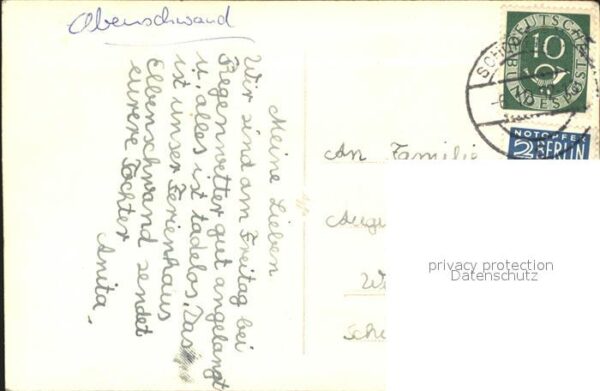 Obenschwand
Meine Lieben
Wir sind am Freitag bei
Regenwetter gut angelangt
u. alles ist tadelos. Das
ist unser Ferienhaus
Elbenschwand sendet
eurere Tochter
Anita.
DEUTSCHE
BUNDESPOST
10
NOTOPFER
2 BERLIN
An Familie
privacy protection
Datenschutz